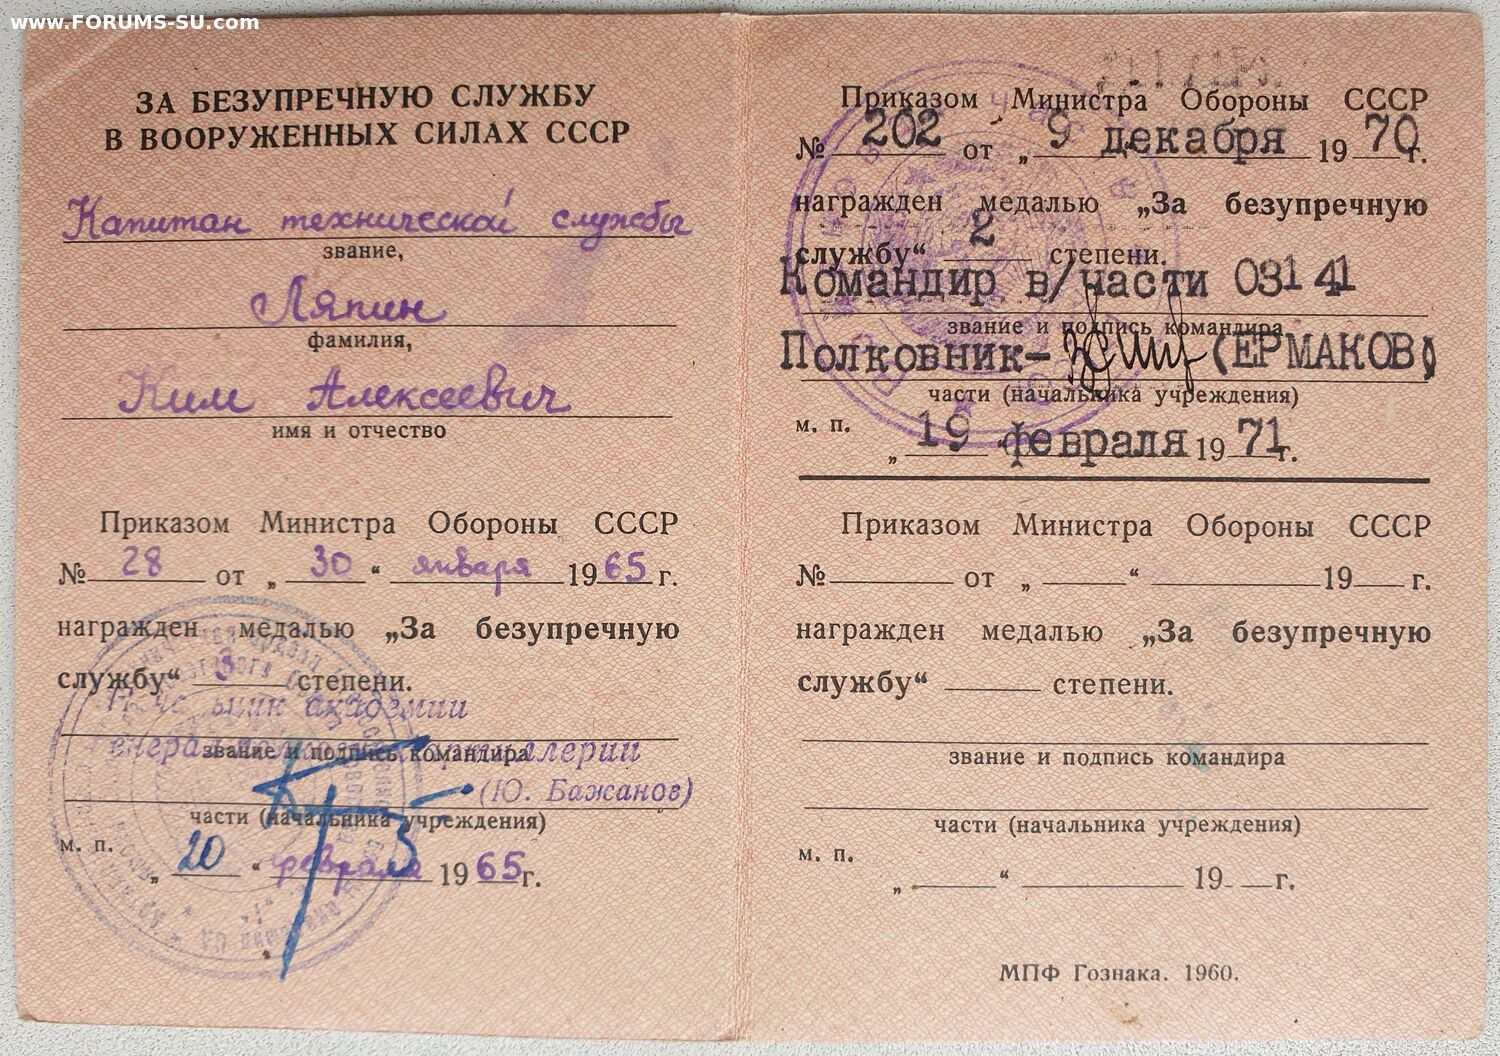 www.FORUMS-SU.com
ЗА БЕЗУПРЕЧНУЮ СЛУЖБУ
В ВООРУЖЕННЫХ СИЛАХ СССР
Капитан технической службы
звание,
Ляпин
фамилия,
Ким Алексеевич
имя и отчество
Приказом Министра Обороны СССР
№ 28 от „ 30 “ января 1965 г.
награжден медалью „За безупречную
службу“ 3 степени.
академии
звание и подпись командира
(Ю. Бажанов)
части (начальника учреждения)
м. п.
„ 20 “ февраля 1965 г.
Приказом Министра Обороны СССР
№ 202 от „ 9 декабря 1970 г.
награжден медалью „За безупречную
службу“ 2 степени.
Командир в/части 03141
звание и подпись командира
Полковник- (ЕРМАКОВ)
части (начальника учреждения)
м. п.
„ 19 февраля 1971 г.
Приказом Министра Обороны СССР
№ от „ “ 19 г.
награжден медалью „За безупречную
службу“ степени.
звание и подпись командира
части (начальника учреждения)
м. п.
„ “ 19 г.
МПФ Гознака. 1960.